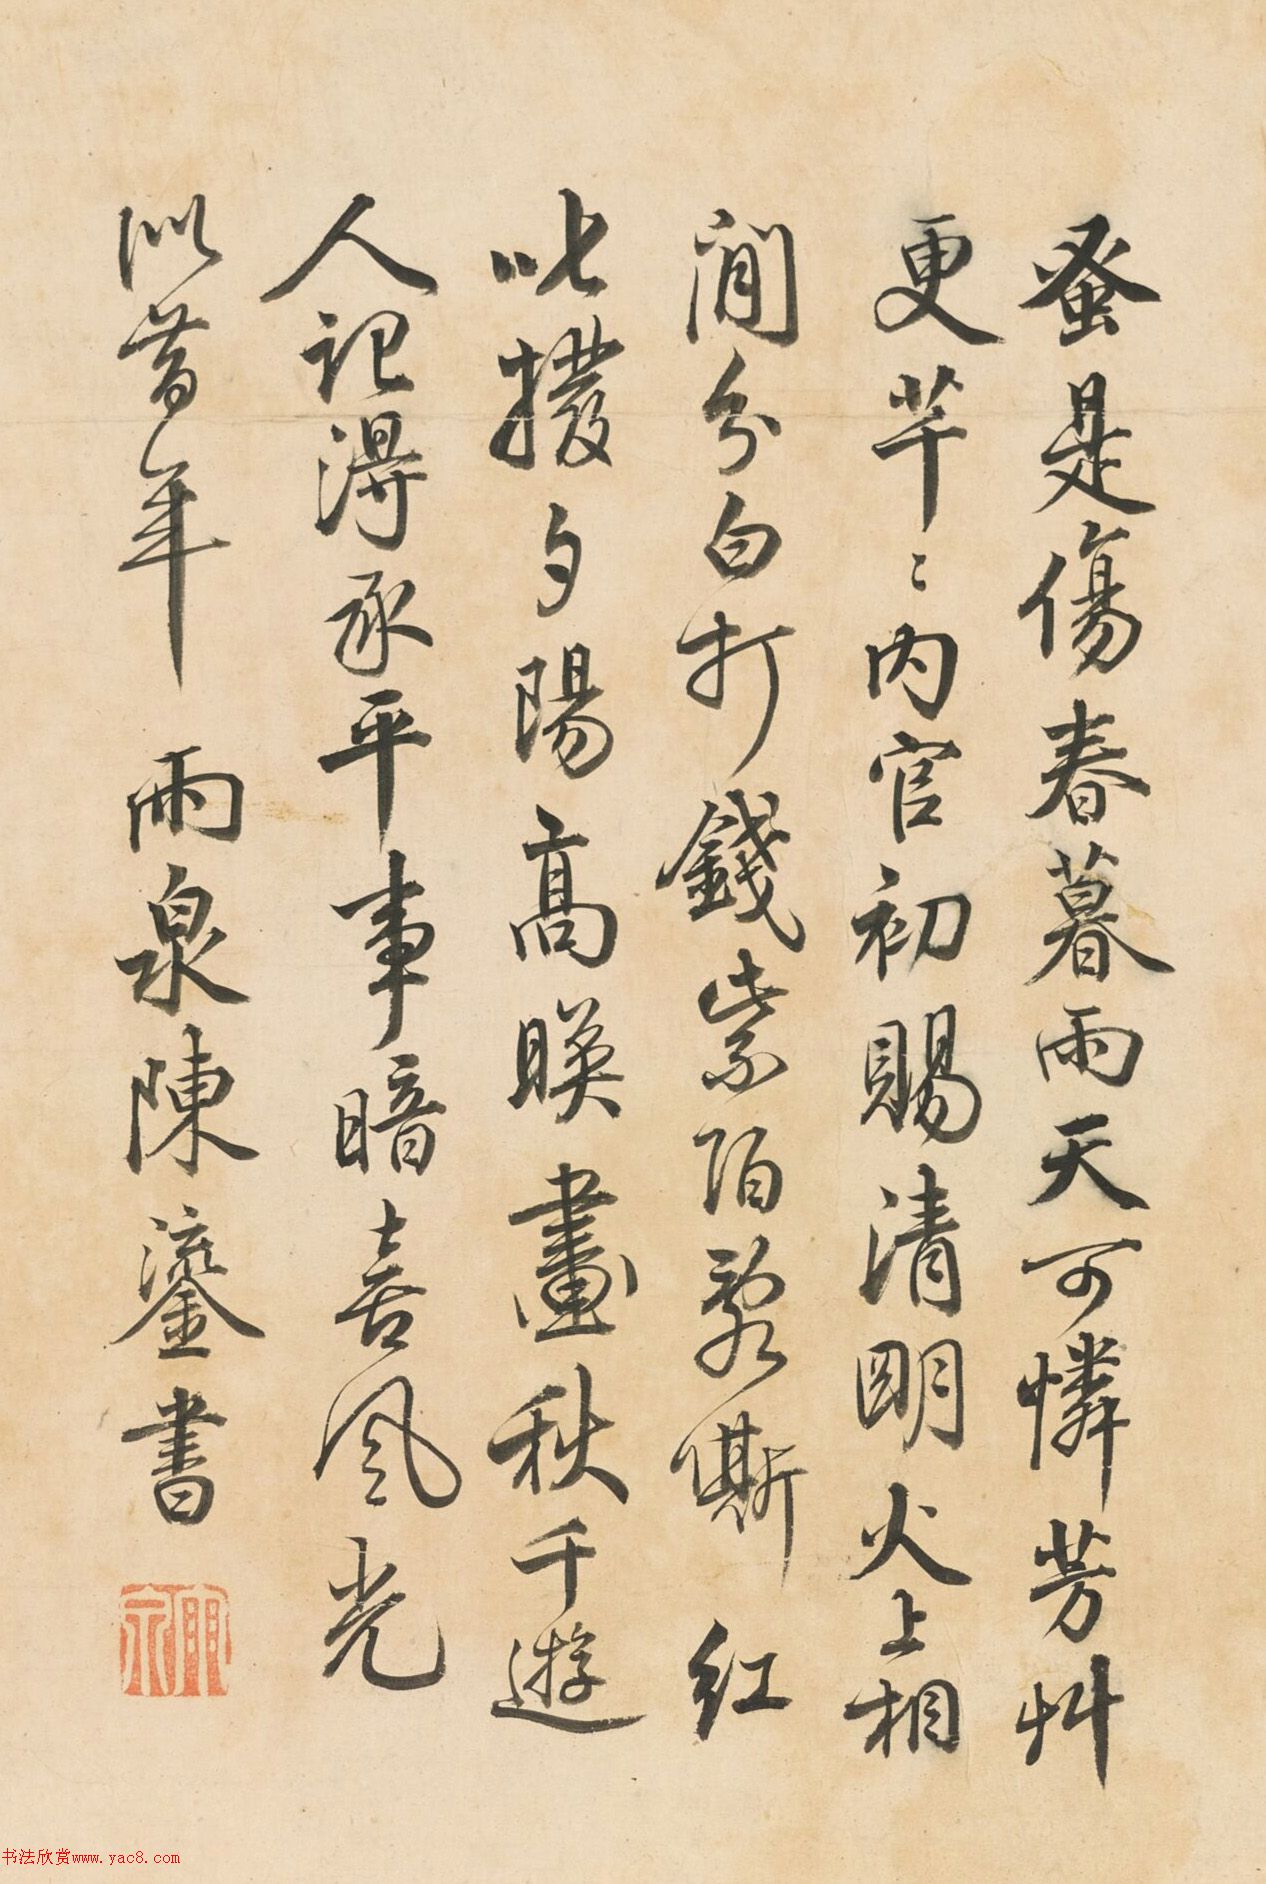 蚤是傷春暮雨天可憐芳艸
更芊〻內官初賜清明火上相
閒分白打錢紫陌亂嘶紅
叱撥夕陽高暎畫秋千遊
人記得承平事暗喜風光
似昔年 雨泉陳鎏書
雨泉
书法欣赏www.yac8.com